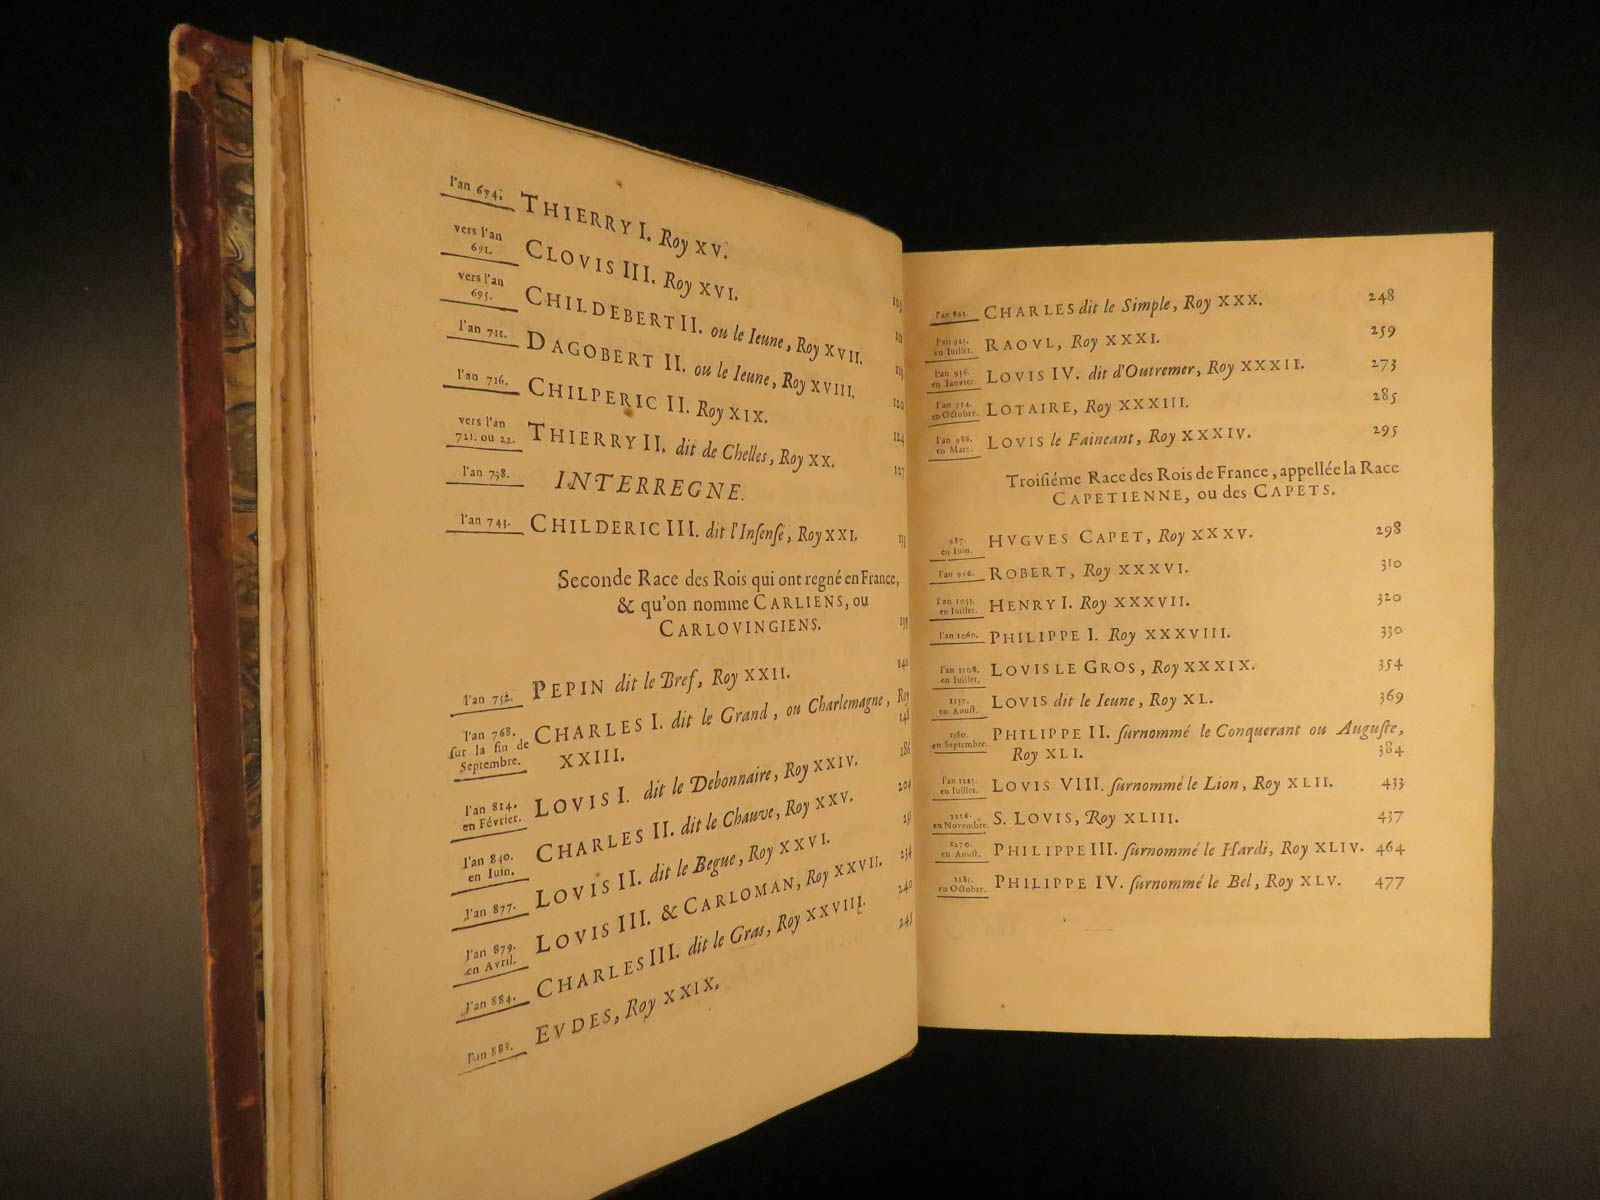 l'an 674. THIERRY I. Roy XV. 105
vers l'an 691. CLOVIS III. Roy XVI. 111
vers l'an 695. CHILDEBERT II. ou le Ieune, Roy XVII. 113
l'an 711. DAGOBERT II. ou le Ieune, Roy XVIII. 120
l'an 716. CHILPERIC II. Roy XIX. 124
vers l'an 721. ou 22. THIERRY II. dit de Chelles, Roy XX. 127
l'an 738. INTERREGNE.
l'an 743. CHILDERIC III. dit l'Insensé, Roy XXI. 135
Seconde Race des Rois qui ont regné en France,
& qu'on nomme CARLIENS, ou
CARLOVINGIENS. 139
l'an 752. PEPIN dit le Bref, Roy XXII. 140
l'an 768. sur la fin de Septembre. CHARLES I. dit le Grand, ou Charlemagne, Roy
XXIII. 148
l'an 814. en Février. LOVIS I. dit le Debonnaire, Roy XXIV. 186
l'an 840. en Iuin. CHARLES II. dit le Chauve, Roy XXV. 204
l'an 877. LOVIS II. dit le Begue, Roy XXVI. 231
l'an 879. en Avril. LOVIS III. & CARLOMAN, Roy XXVII. 234
l'an 884. CHARLES III. dit le Gras, Roy XXVIII. 240
l'an 888. EVDES, Roy XXIX. 245
l'an CHARLES dit le Simple, Roy XXX. 248
l'an 923. en Iuillet. RAOVL, Roy XXXI. 259
l'an 936. en Ianvier. LOVIS IV. dit d'Outremer, Roy XXXII. 273
l'an 954. en Octobre. LOTAIRE, Roy XXXIII. 285
l'an 986. en Mars. LOVIS le Faineant, Roy XXXIV. 295
Troisiéme Race des Rois de France, appellée la Race
CAPETIENNE, ou des CAPETS.
987. en Iuin. HVGVES CAPET, Roy XXXV. 298
l'an 996. ROBERT, Roy XXXVI. 310
l'an 1033. en Iuillet. HENRY I. Roy XXXVII. 320
l'an 1060. PHILIPPE I. Roy XXXVIII. 330
l'an 1108. en Iuillet. LOVIS LE GROS, Roy XXXIX. 354
1137. en Aoust. LOVIS dit le Ieune, Roy XL. 369
1180. en Septembre. PHILIPPE II. surnommé le Conquerant ou Auguste,
Roy XLI. 384
l'an 1223. en Iuillet. LOVIS VIII. surnommé le Lion, Roy XLII. 433
1226. en Novembre. S. LOVIS, Roy XLIII. 437
1270. en Aoust. PHILIPPE III. surnommé le Hardi, Roy XLIV. 464
1285. en Octobre. PHILIPPE IV. surnommé le Bel, Roy XLV. 477